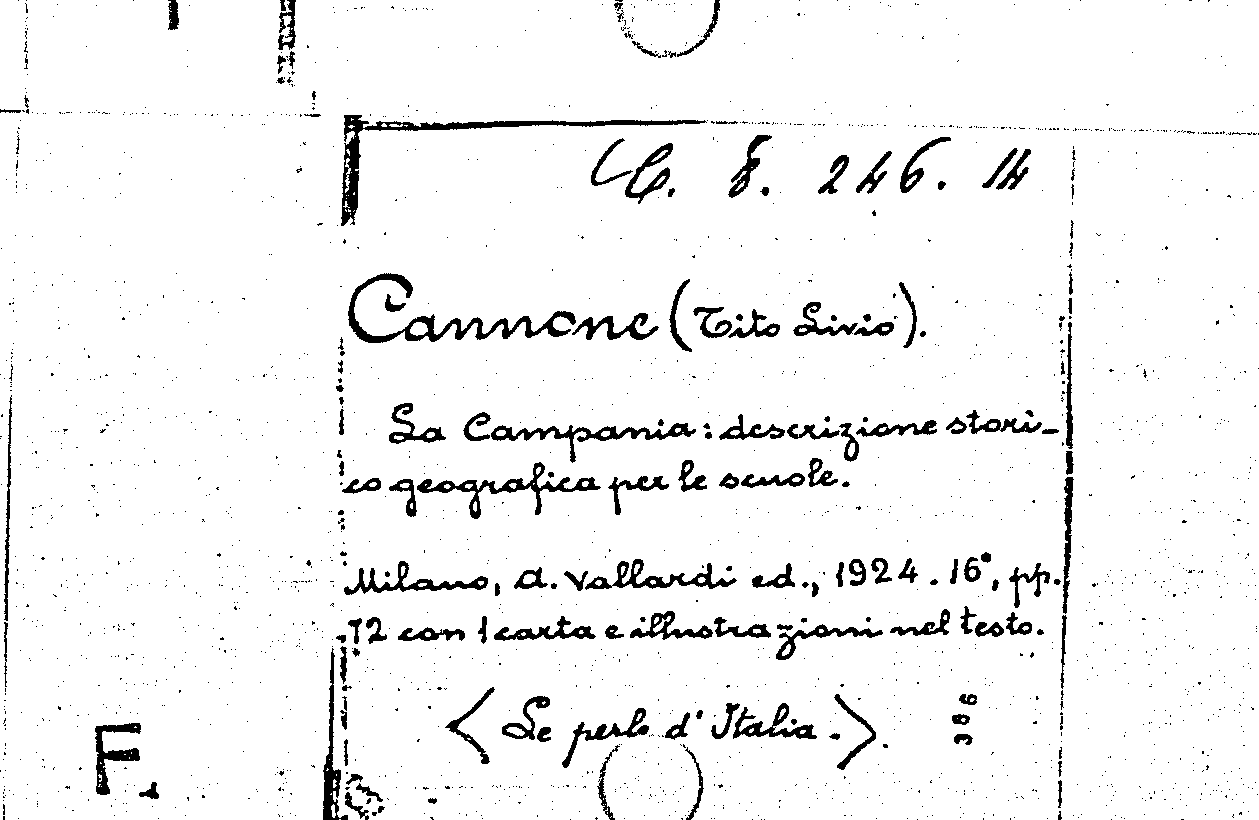 C. 8. 246. 14
Cannone (Tito Livio).
La Campania: descrizione stori-
co geografica per le scuole.
Milano, A. Vallardi ed., 1924. 16°, pp.
72 con 1 carta e illustrazioni nel testo.
< Le perle d'Italia. >.
386
F.